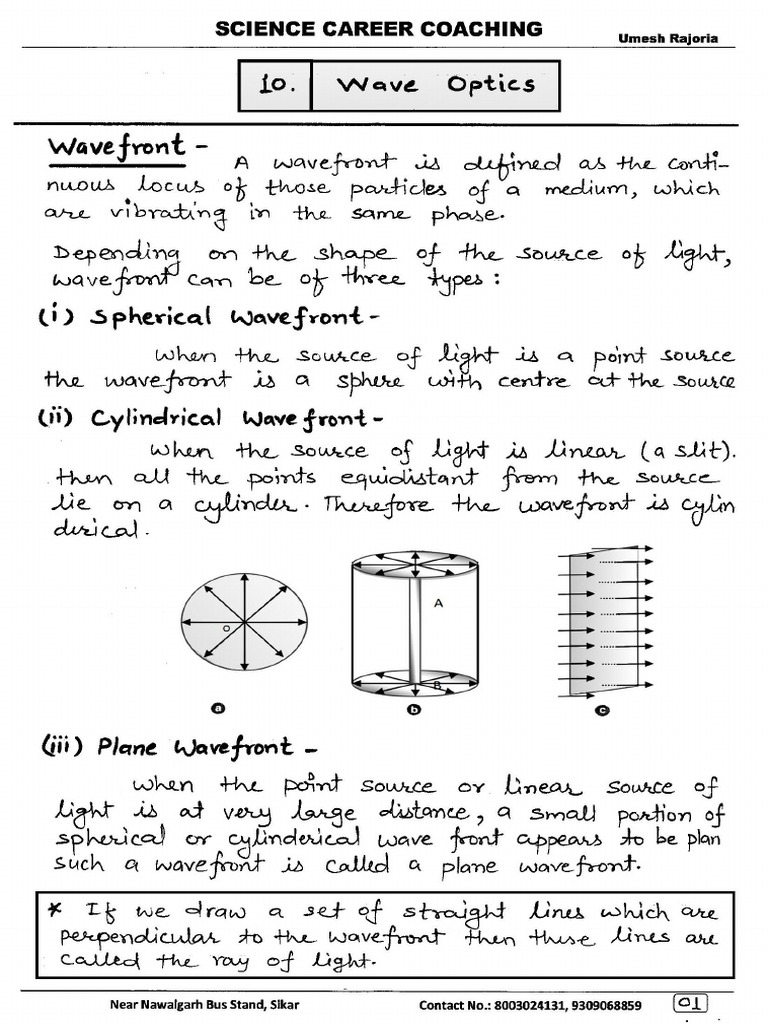 SCIENCE CAREER COACHING
Umesh Rajoria
10. Wave Optics
Wavefront -
A wavefront is defined as the conti-
nuous locus of those particles of a medium, which
are vibrating in the same phase.
Depending on the shape of the source of light,
wavefront can be of three types :
(i) Spherical Wavefront -
When the source of light is a point source
the wavefront is a sphere with centre at the source
(ii) Cylindrical Wavefront -
When the source of light is linear (a slit).
then all the points equidistant from the source
lie on a cylinder. Therefore the wavefront is cylin
derical.
O
A
B
a
b
c
(iii) Plane Wavefront -
When the point source or linear source of
light is at very large distance, a small portion of
spherical or cylinderical wave front appears to be plan
such a wavefront is called a plane wavefront.
* If we draw a set of straight lines which are
perpendicular to the wavefront then these lines are
called the ray of light.
Near Nawalgarh Bus Stand, Sikar
Contact No.: 8003024131, 9309068859
01